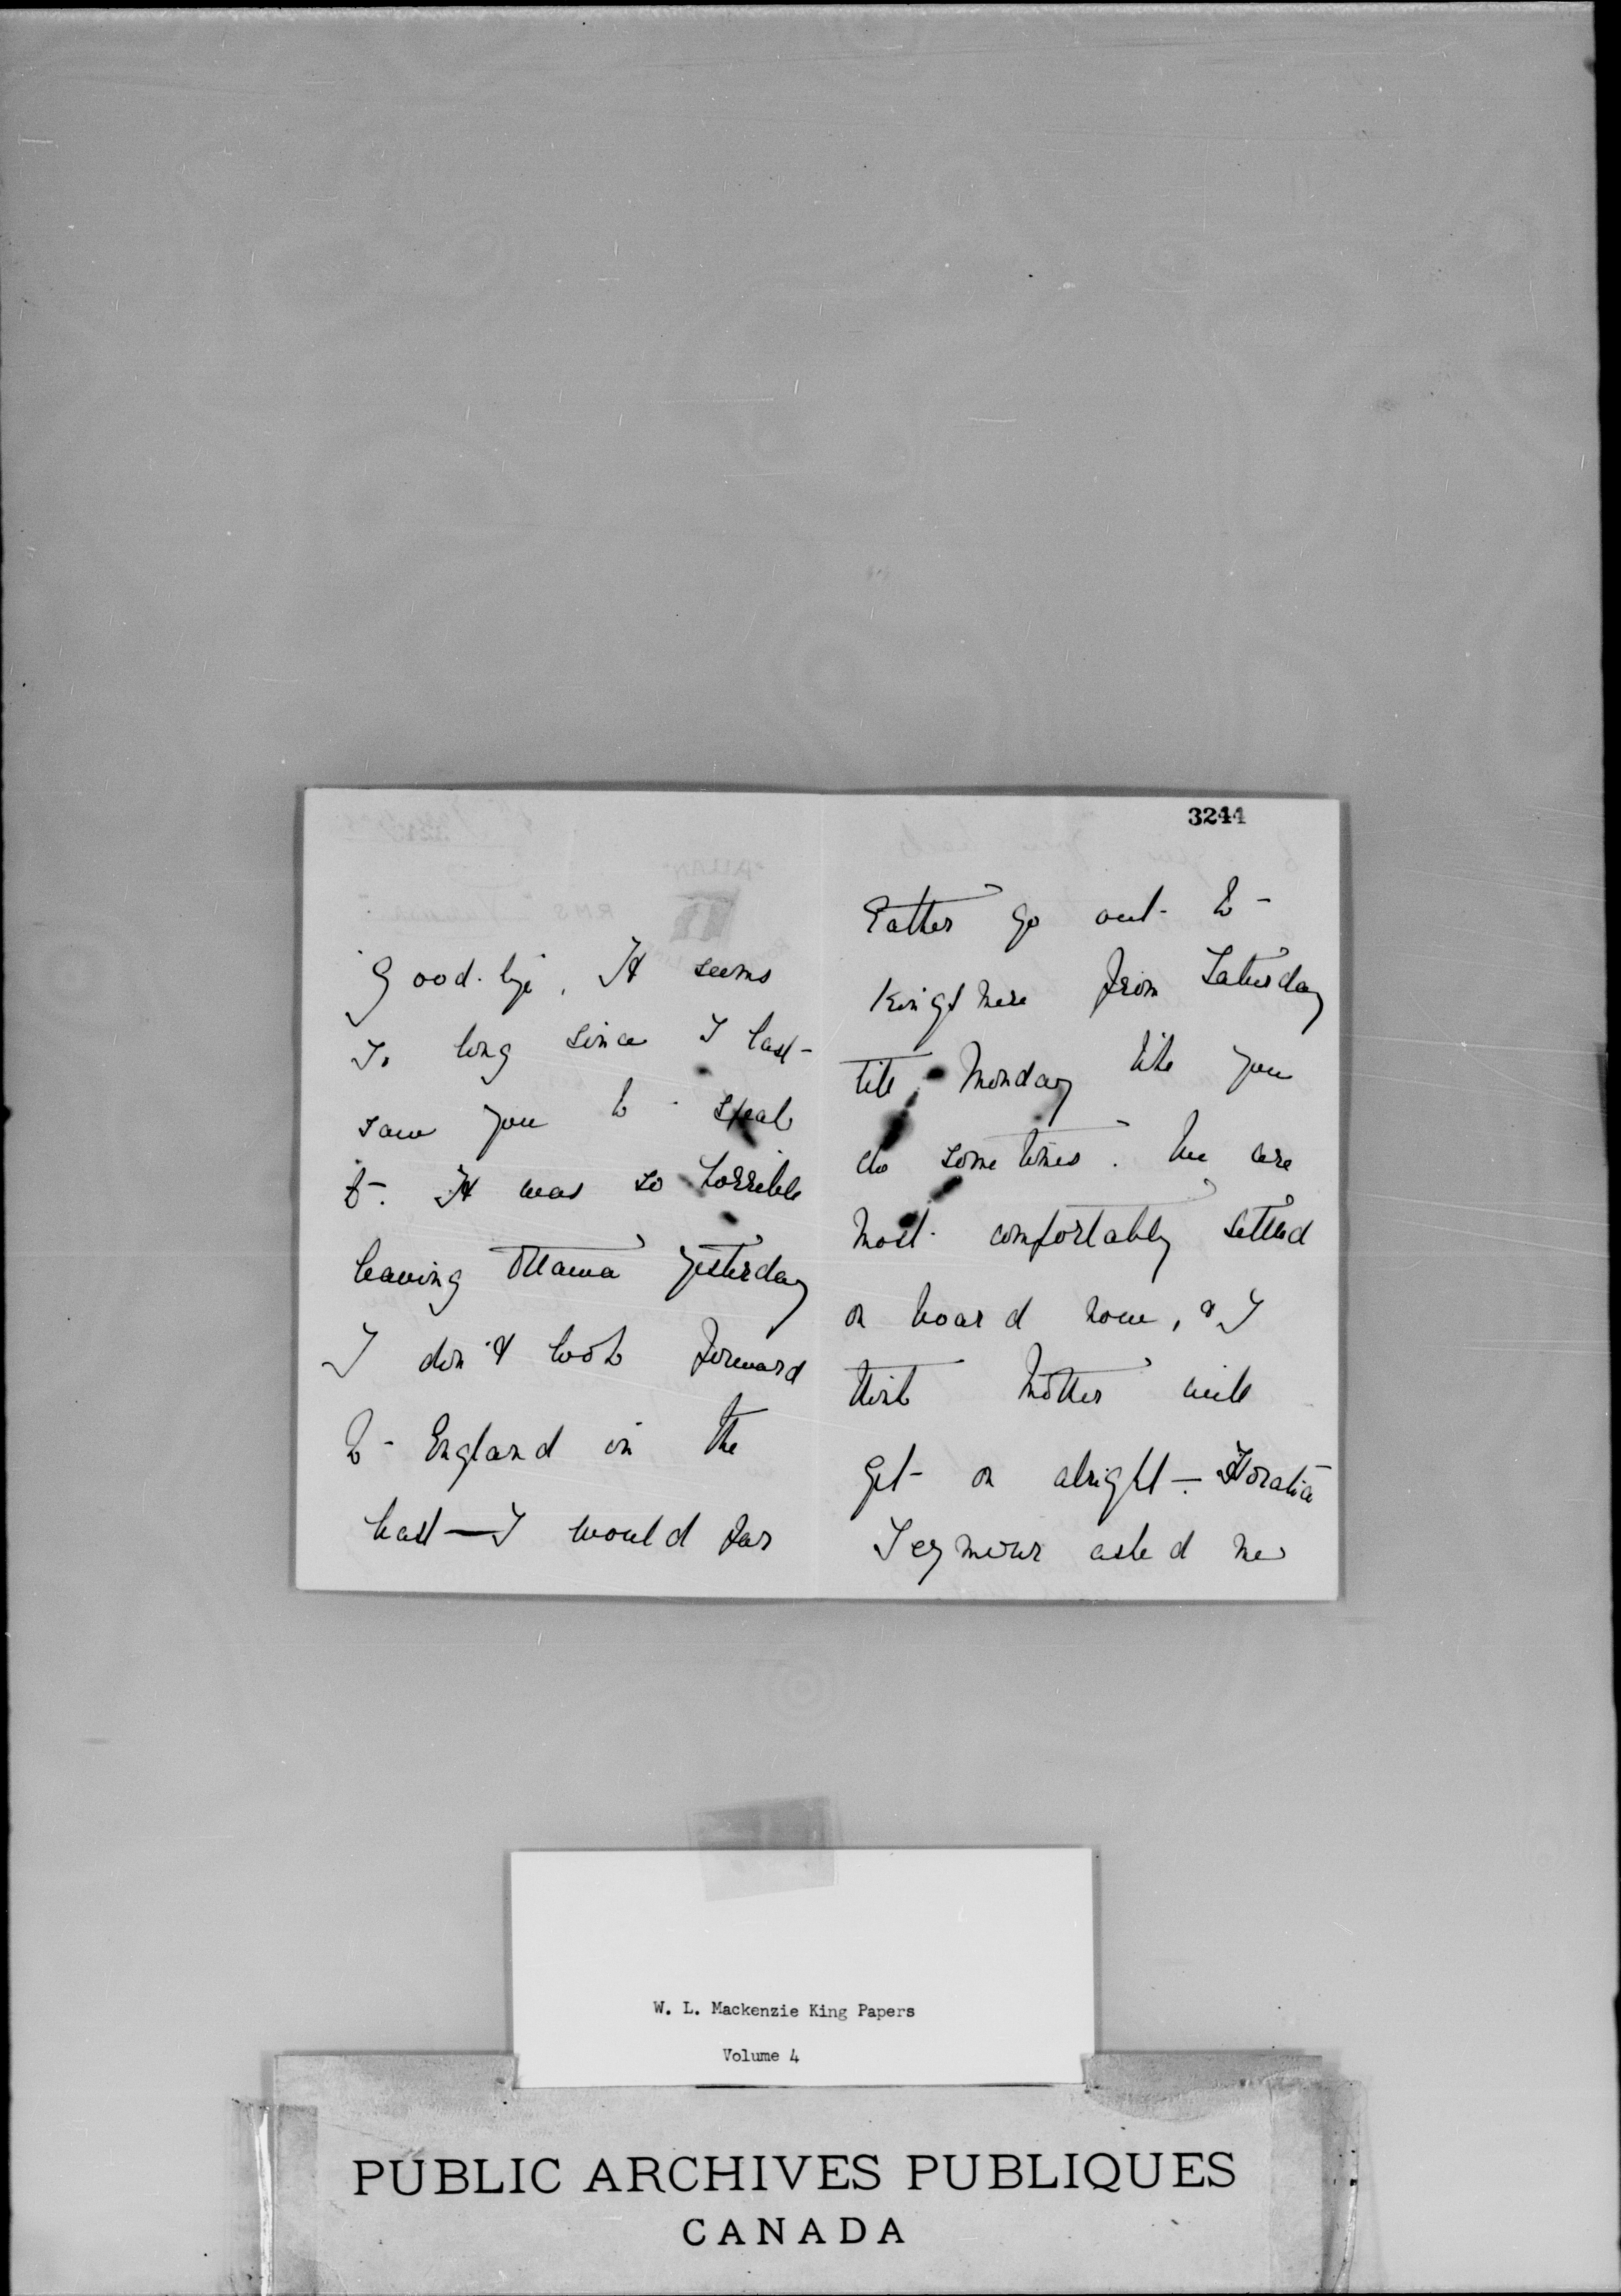 Good-bye. It seems
so long since I last
saw you to speak
to. It was so horrible
leaving Ottawa yesterday
I don't look forward
to England in the
least — I would far
3244
rather go out to
Kingsmere from Saturday
till Monday like you
do sometimes. We are
most comfortably settled
on board now, & I
think Mother will
get on alright — Horatia
Seymour asked me
W. L. Mackenzie King Papers
Volume 4
PUBLIC ARCHIVES PUBLIQUES
CANADA